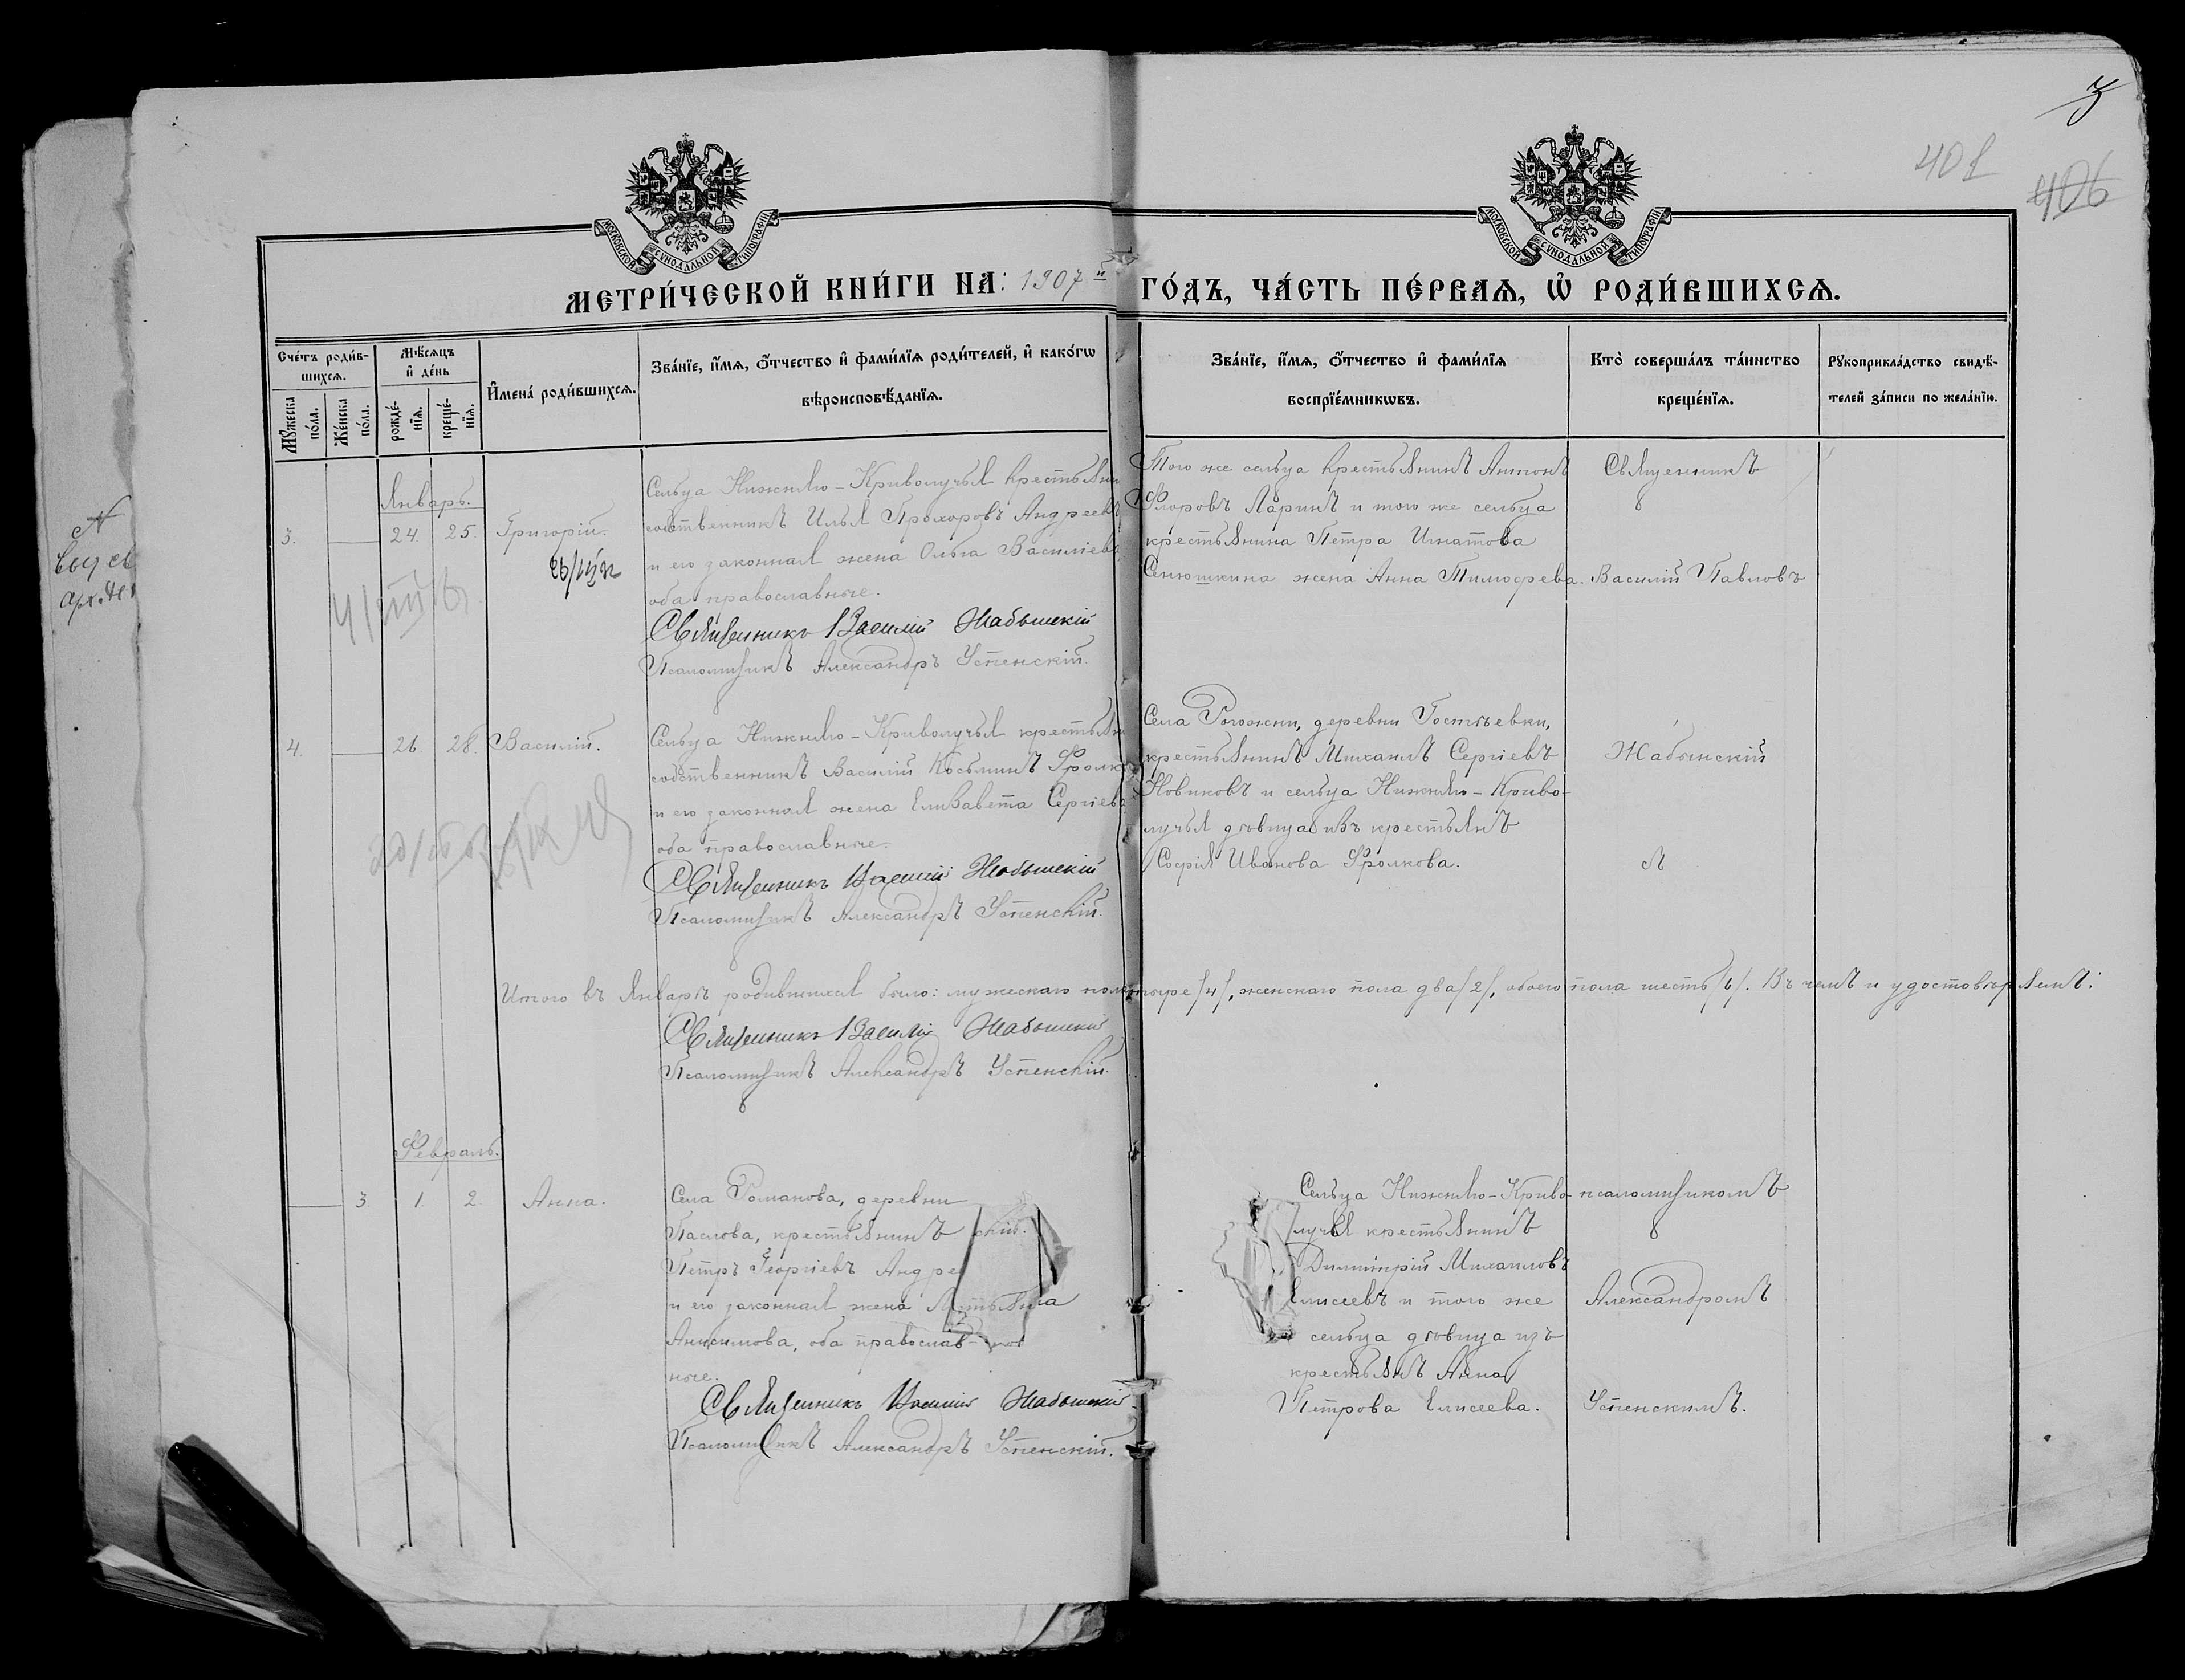 401
406
МОСКОВСКОЙ СѴНОДАЛЬНОЙ ТИПОГРАФІИ
МОСКОВСКОЙ СѴНОДАЛЬНОЙ ТИПОГРАФІИ
МЕТРИ́ЧЕСКОЙ КНИ́ГИ НА: 1907 й ГО́ДЪ, ЧА́СТЬ ПЕ́РВАѦ, Ѽ РОДИ́ВШИХСѦ.
Сче́тъ роди́в-
шихсѧ.
Мꙋ́жеска по́ла.
Же́нска по́ла.
Мѣ́сѧцъ
и҆ де́нь
рожде́-
нїѧ.
креще́-
нїѧ.
И҆мена̀ роди́вшихсѧ.
Зва́нїе, и҆́мѧ, ѻ҆́тчество и҆ фами́лїѧ роди́телей, и҆ како́гѡ
вѣроисповѣ́данїѧ.
Зва́нїе, и҆́мѧ, ѻ҆́тчество и҆ фами́лїѧ
воспрїе́мникѡвъ.
Кто̀ соверша́лъ та́инство
креще́нїѧ.
Рꙋкоприкла́дство свидѣ́-
телей за́писи по жела́нїю.
Январь.
3.
24.
25.
Григорій.
Сельца Нижняго-Криволучья крестьянин
собственникъ Илья Прохоровъ Андреевъ
и его законная жена Ольга Василіева
оба православные.
Священникъ Василій Жабынскій
Псаломщикъ Александръ Успенскій.
Того же сельца крестьянинъ Антонъ
Флоровъ Ларинъ и того же сельца
крестьянина Петра Игнатова
Сенюшкина жена Анна Тимофеева.
Священникъ
Василій Павловъ
4.
26.
28.
Василій.
Сельца Нижняго-Криволучья крестьянин
собственникъ Василій Косьминъ Фролков
и его законная жена Елизавета Сергіева
оба православные.
Священникъ Василій Жабынскій
Псаломщикъ Александръ Успенскій.
Села Рогожни, деревни Гостѣевки,
крестьянинъ Михаилъ Сергіевъ
Новиковъ и сельца Нижняго-Криво-
лучья дѣвица изъ крестьянъ
Софія Иванова Фролкова.
Жабынскій
Итого въ Январѣ родившихся было: мужескаго пола четыре /4/, женскаго пола два /2/, обоего пола шесть /6/. Въ чемъ и удостовѣряемъ:
Священникъ Василій Жабынскій
Псаломщикъ Александръ Успенскій.
Февраль.
3.
1.
2.
Анна.
Села Романова, деревни
Паслова, крестьянинъ
Петръ Георгіевъ Андре
и его законная жена
Анисимова, оба православ-
ные.
Священникъ Василій Жабынскій
Псаломщикъ Александръ Успенскій.
Сельца Нижняго-Криво-
лучья крестьянинъ
Димитрій Михаиловъ
Елисеевъ и того же
сельца дѣвица изъ
крестьянъ Анна
Петрова Елисеева.
псаломщикомъ
Александромъ
Успенскимъ.